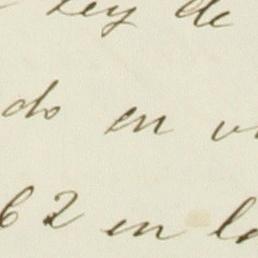 Ley de
do en
62 en la